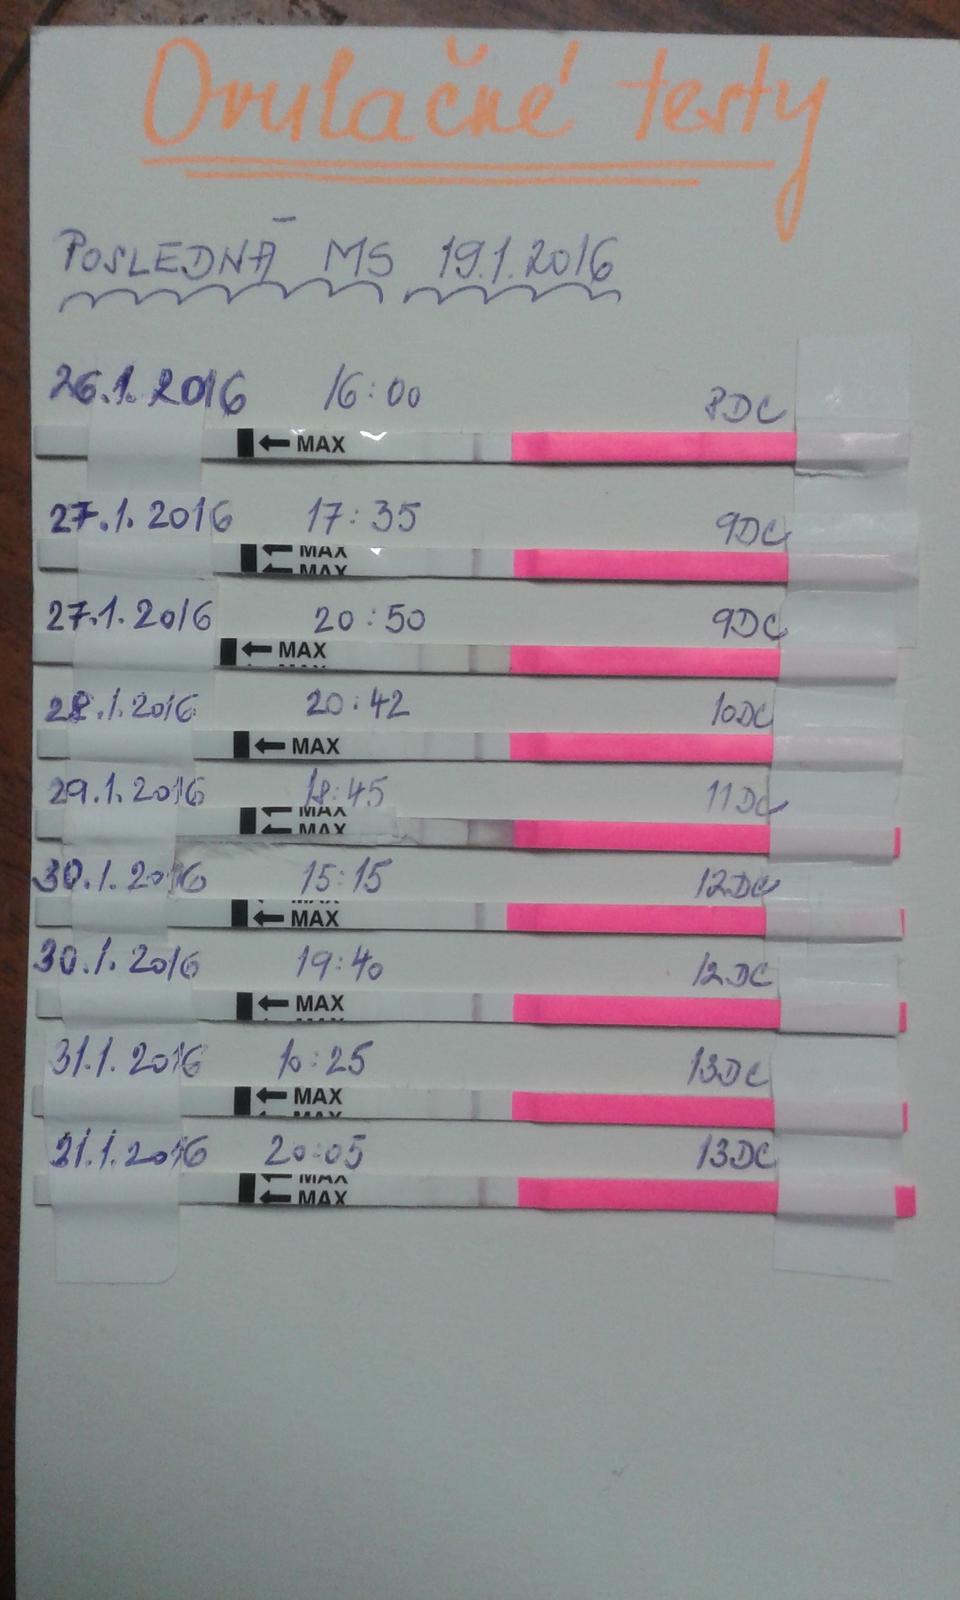 Ovulačné testy
POSLEDNÁ MS 19.1.2016
26.1.2016 16:00 8DC
MAX
27.1.2016 17:35 9DC
MAX
MAX
27.1.2016 20:50 9DC
MAX
28.1.2016 20:42 10DC
MAX
29.1.2016 18:45 11DC
MAX
MAX
30.1.2016 15:15 12DC
MAX
30.1.2016 19:40 12DC
MAX
31.1.2016 10:25 13DC
MAX
MAX
31.1.2016 20:05 13DC
MAX
MAX